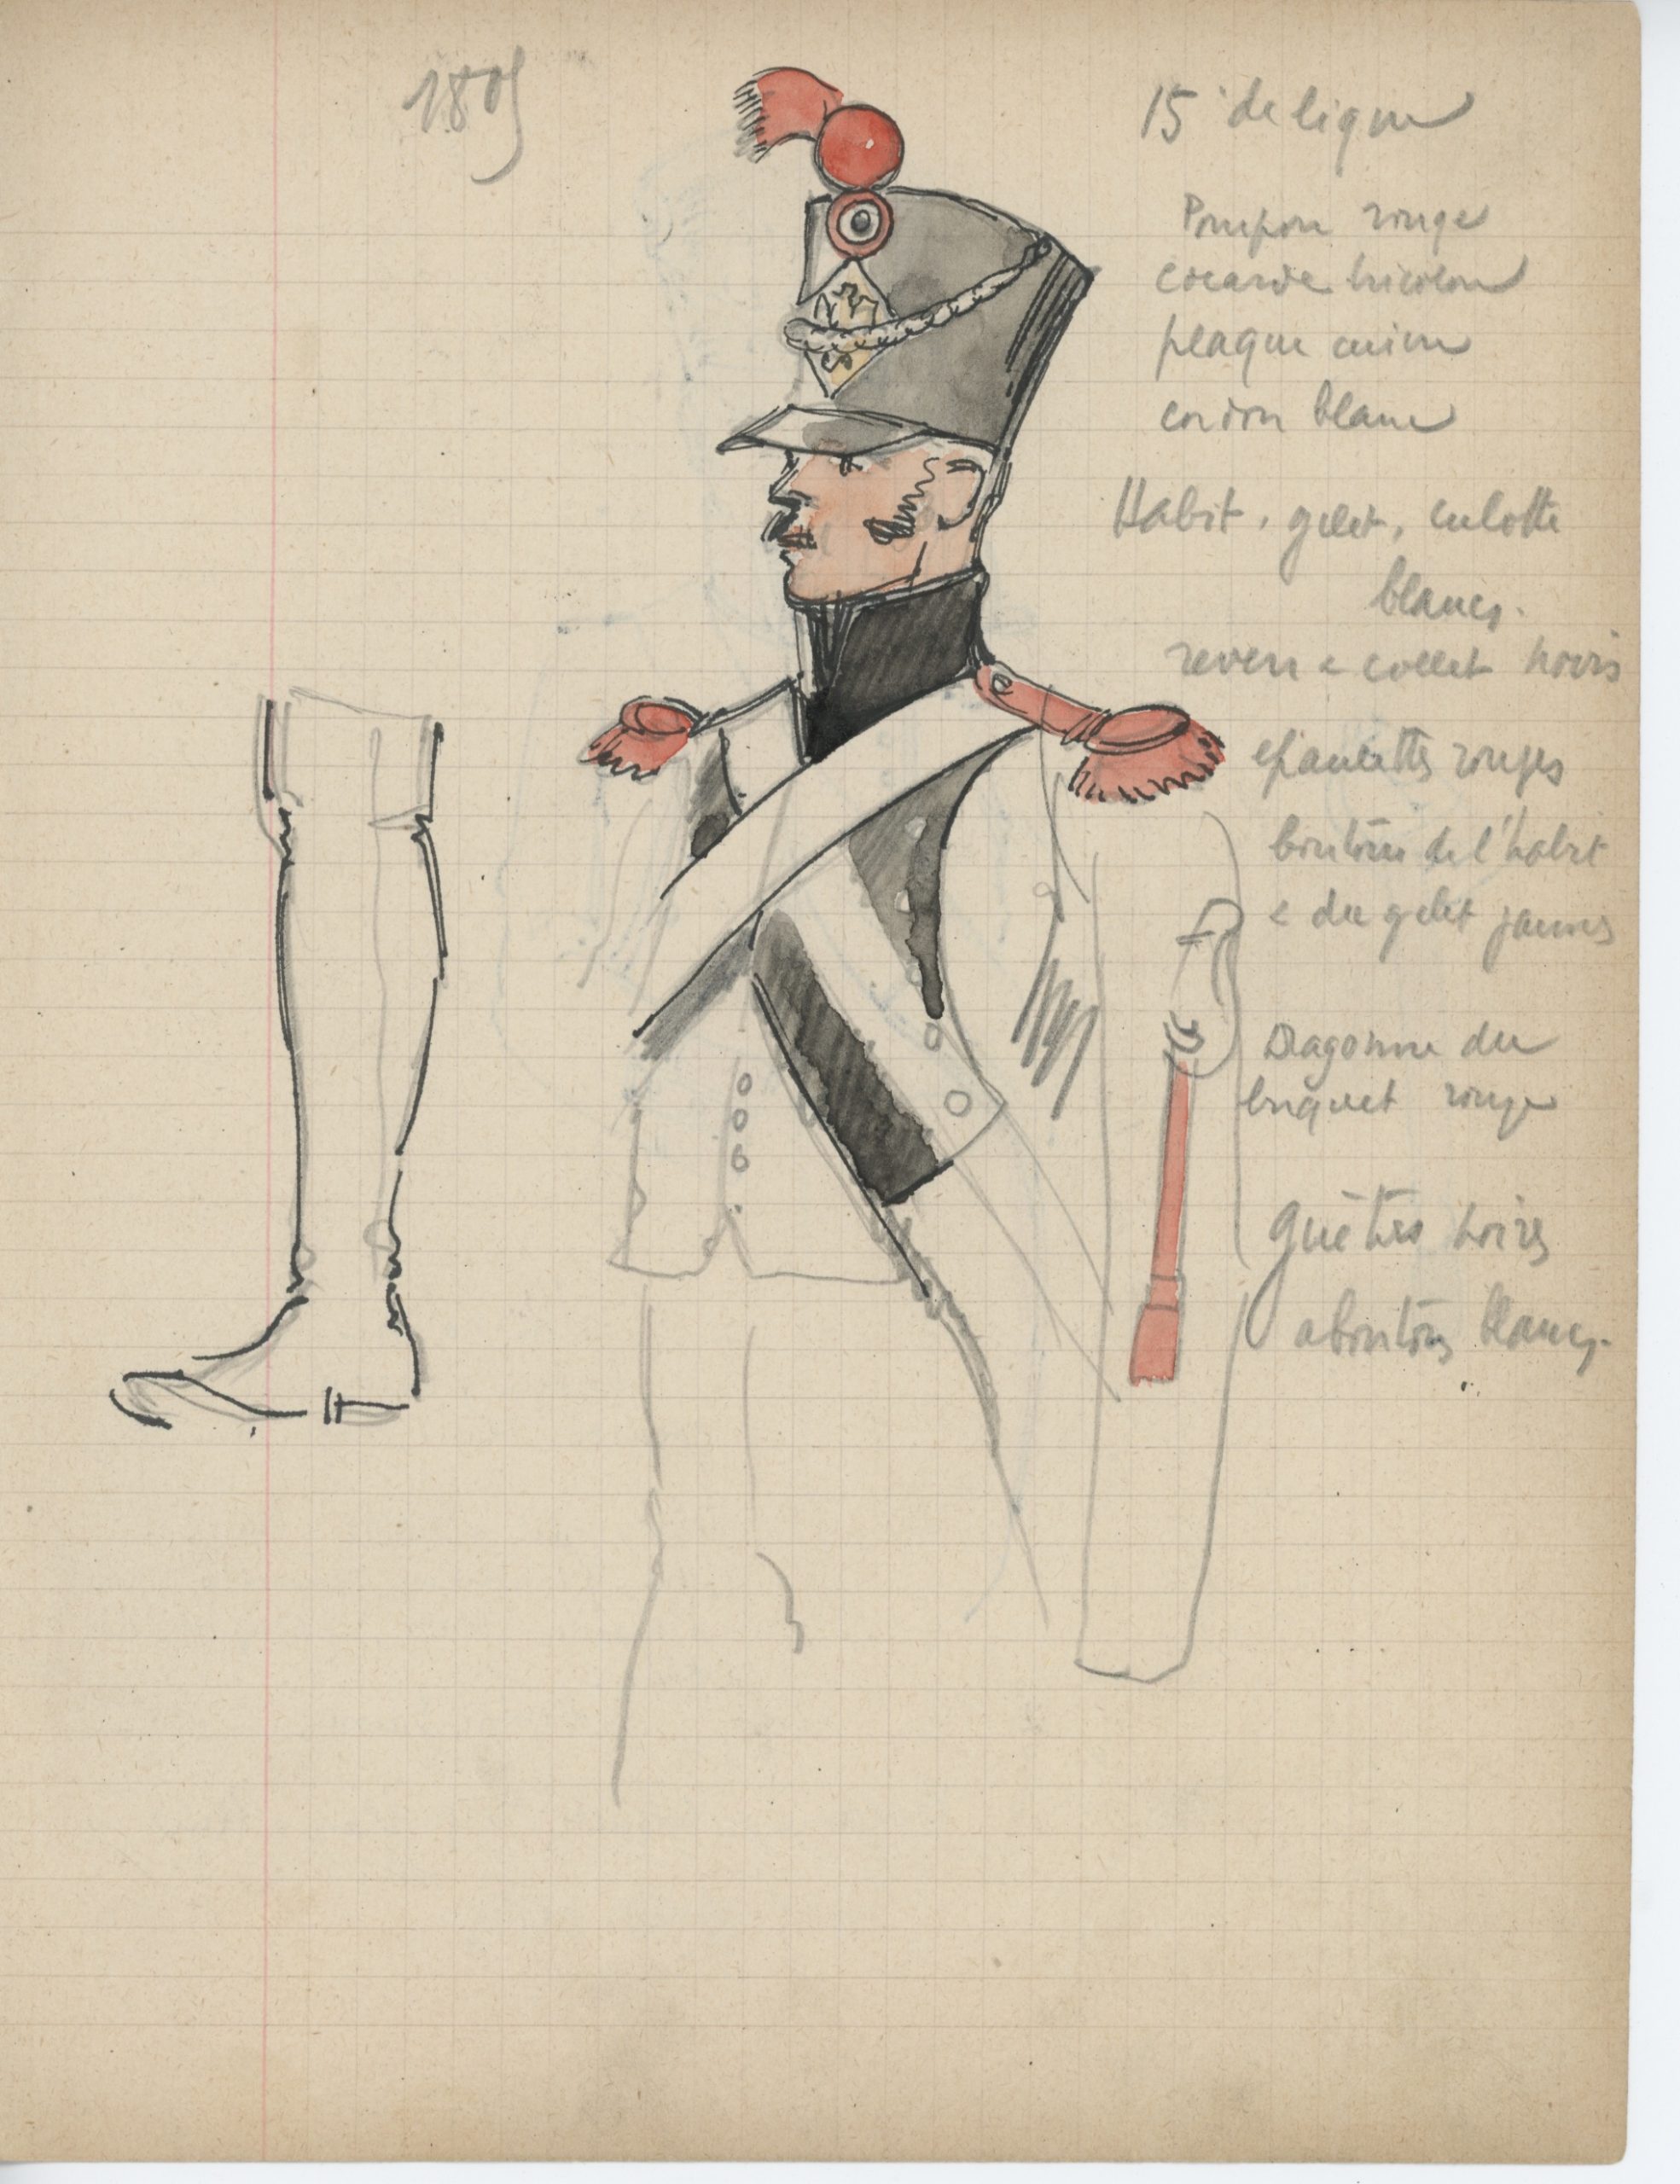 1805
15e de ligne
Pompon rouge
cocarde tricolore
plaque cuivre
cordon blanc
Habit, gilet, culotte
blancs.
revers & collet noirs
epaulettes rouges
boutons de l'habit
& du gilet jaunes
Dragonne du
briquet rouge
guêtres noires
a boutons blancs.